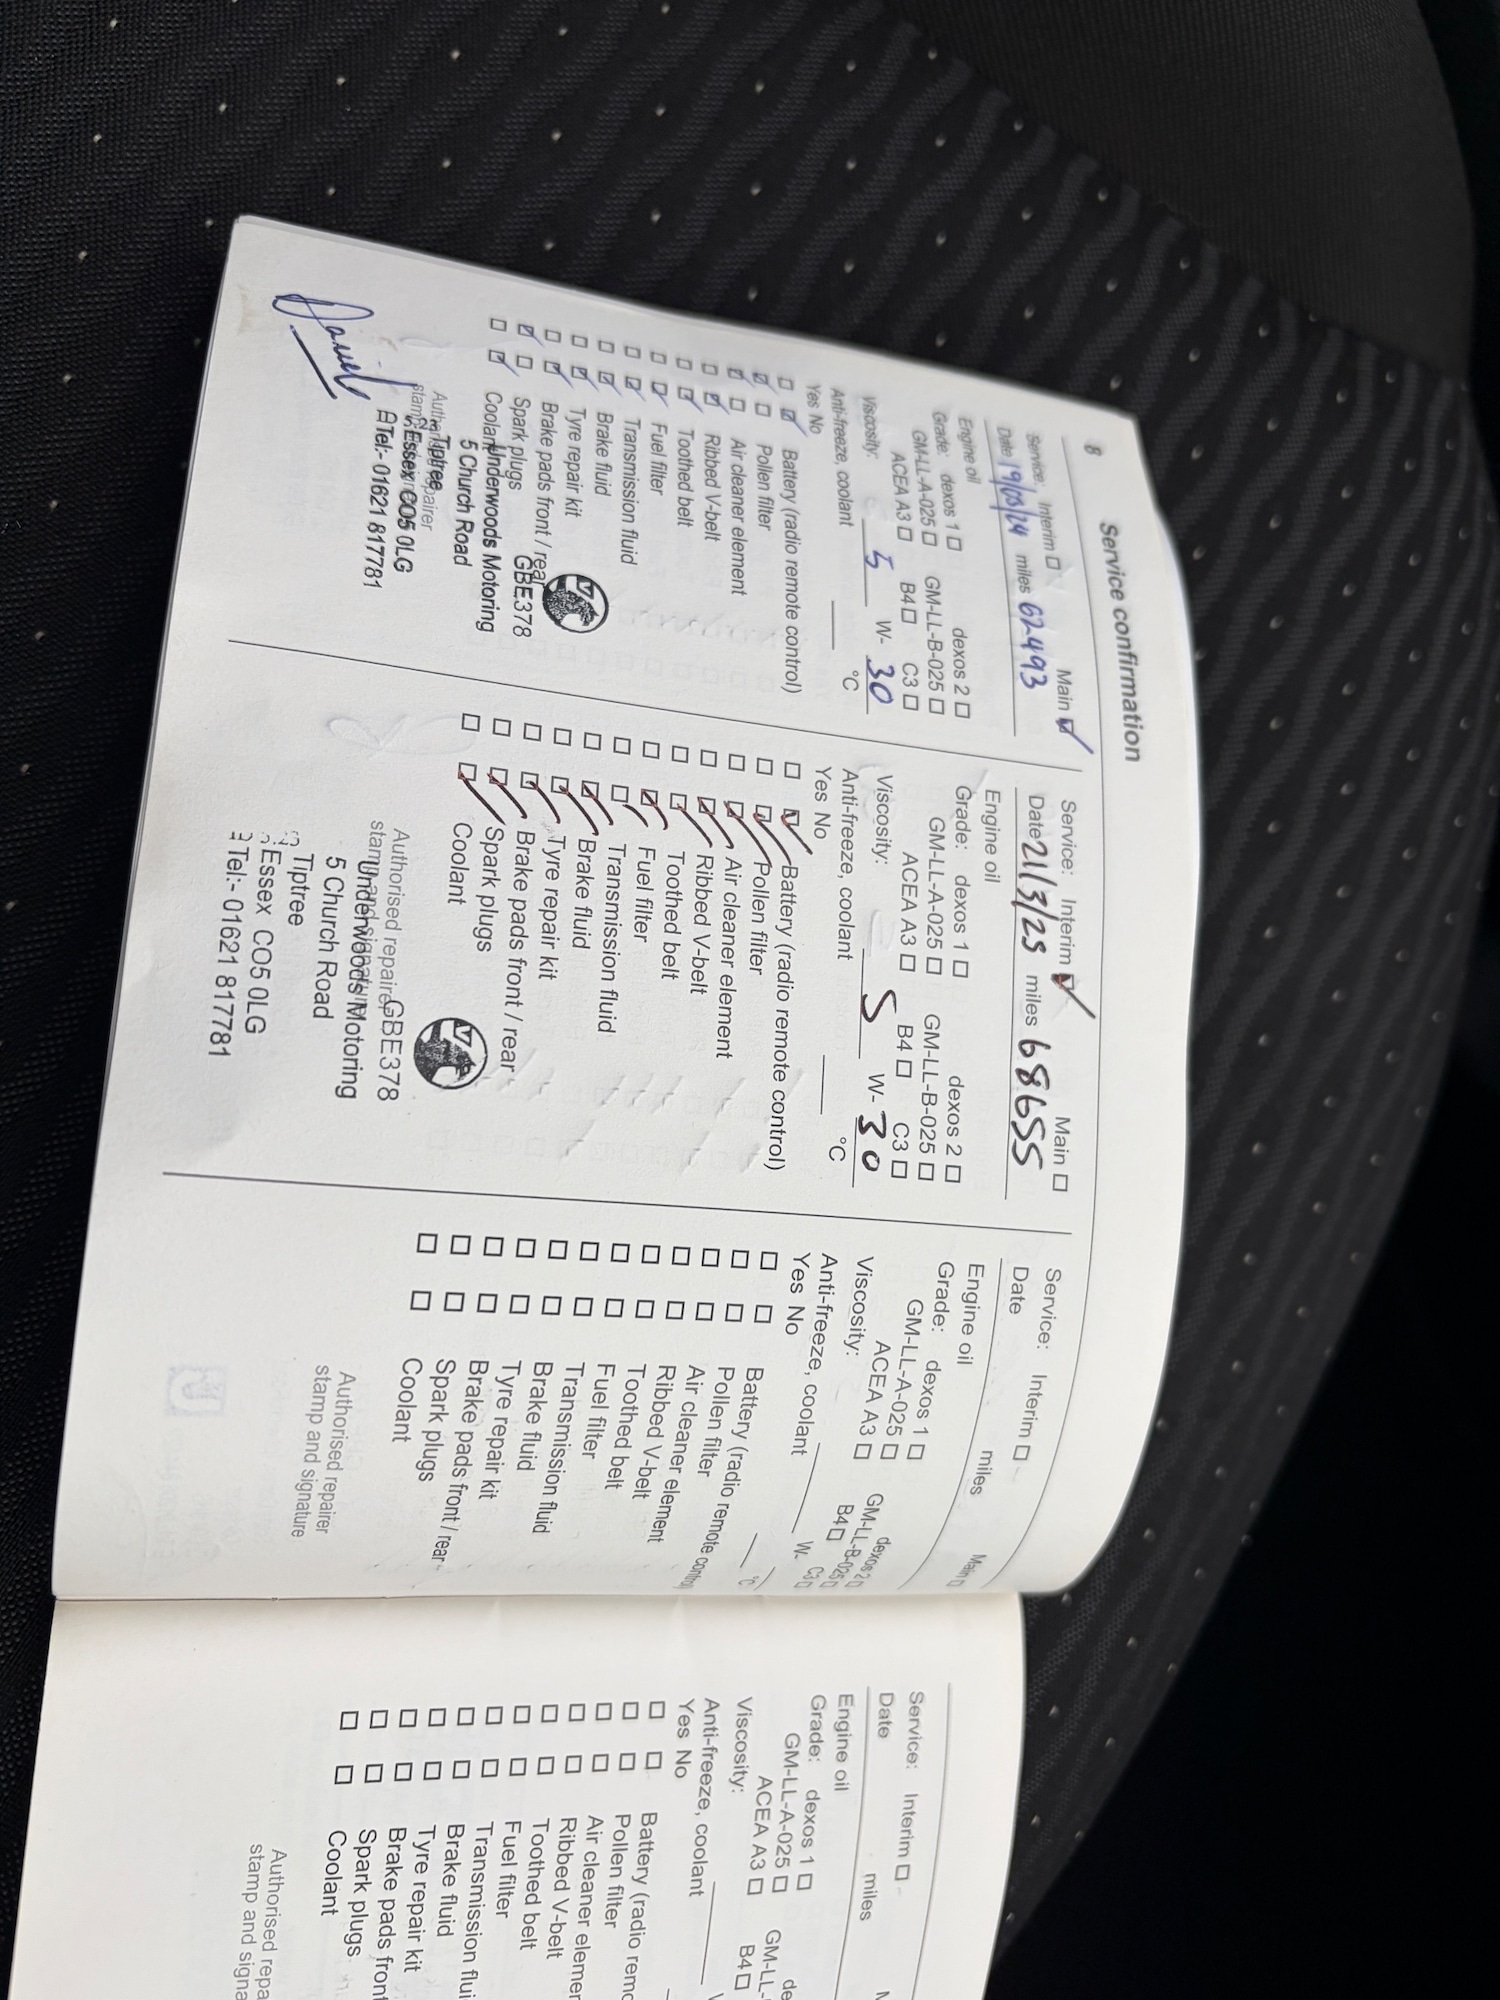 8
Service confirmation
Service: Interim ☐ Main ☑
Date 19/03/24 miles 62493
Engine oil
Grade: dexos 1 ☐ dexos 2 ☐
GM-LL-A-025 ☐ GM-LL-B-025 ☐
ACEA A3 ☐ B4 ☐ C3 ☐
Viscosity: 5 W- 30
Anti-freeze, coolant °C
Yes No
☐ ☑ Battery (radio remote control)
☑ ☐ Pollen filter
☑ ☐ Air cleaner element
☐ ☑ Ribbed V-belt
☐ ☑ Toothed belt
☐ ☑ Fuel filter
☐ ☑ Transmission fluid
☐ ☑ Brake fluid
☐ ☑ Tyre repair kit
☐ ☑ Brake pads front / rear
☑ ☐ Spark plugs
☐ ☑ Coolant
GBE378
Underwoods Motoring
5 Church Road
Tiptree
Essex CO5 0LG
Tel:- 01621 817781
Authorised repairer
Daniel
Service: Interim ☑ Main ☐
Date 21/3/25 miles 68655
Engine oil
Grade: dexos 1 ☐ dexos 2 ☐
GM-LL-A-025 ☐ GM-LL-B-025 ☐
ACEA A3 ☐ B4 ☐ C3 ☐
Viscosity: 5 W- 30
Anti-freeze, coolant °C
Yes No
☐ ☑ Battery (radio remote control)
☐ ☑ Pollen filter
☐ ☑ Air cleaner element
☐ ☑ Ribbed V-belt
☐ ☑ Toothed belt
☐ ☑ Fuel filter
☐ ☑ Transmission fluid
☐ ☑ Brake fluid
☐ ☑ Tyre repair kit
☐ ☑ Brake pads front / rear
☐ ☑ Spark plugs
☐ ☑ Coolant
Authorised repairer
stamp and signature
GBE378
Underwoods Motoring
5 Church Road
Tiptree
Essex CO5 0LG
Tel:- 01621 817781
Service: Interim ☐ Main ☐
Date miles
Engine oil
Grade: dexos 1 ☐ dexos 2 ☐
GM-LL-A-025 ☐ GM-LL-B-025 ☐
ACEA A3 ☐ B4 ☐ C3 ☐
Viscosity: W-
Anti-freeze, coolant °C
Yes No
☐ ☐ Battery (radio remote control)
☐ ☐ Pollen filter
☐ ☐ Air cleaner element
☐ ☐ Ribbed V-belt
☐ ☐ Toothed belt
☐ ☐ Fuel filter
☐ ☐ Transmission fluid
☐ ☐ Brake fluid
☐ ☐ Tyre repair kit
☐ ☐ Brake pads front / rear
☐ ☐ Spark plugs
☐ ☐ Coolant
Authorised repairer
stamp and signature
Service: Interim ☐ M
Date miles
Engine oil
Grade: dexos 1 ☐ de
GM-LL-A-025 ☐ GM-LL-
ACEA A3 ☐ B4 ☐
Viscosity:
Anti-freeze, coolant
Yes No
☐ ☐ Battery (radio remo
☐ ☐ Pollen filter
☐ ☐ Air cleaner elemen
☐ ☐ Ribbed V-belt
☐ ☐ Toothed belt
☐ ☐ Fuel filter
☐ ☐ Transmission flui
☐ ☐ Brake fluid
☐ ☐ Tyre repair kit
☐ ☐ Brake pads front
☐ ☐ Spark plugs
☐ ☐ Coolant
Authorised repa
stamp and signa